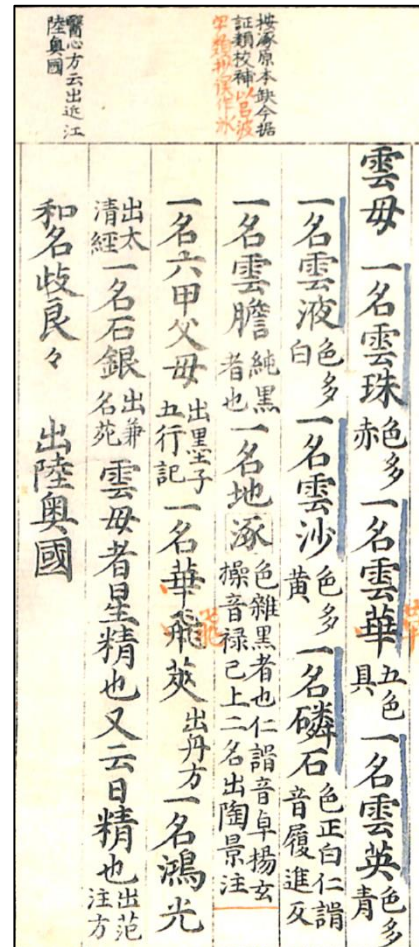 按涿原本缺今据
証類校補以呂波
字類抄誤作氷
醫心方云出近江
陸奥國
雲母 一名雲珠色多赤一名雲華五色具一名雲英色多青
一名雲液色多白一名雲沙色多黄一名磷石色正白仁諝音履進反
一名雲膽純黒者也一名地涿色雜黒者也仁諝音卓揚玄操音禄已上二名出陶景注
一名六甲父母出墨子五行記一名華飛英出丹方一名鴻光
出太清經一名石銀出兼名苑雲母者星精也又云日精也出范注方
和名岐良々 出陸奥國